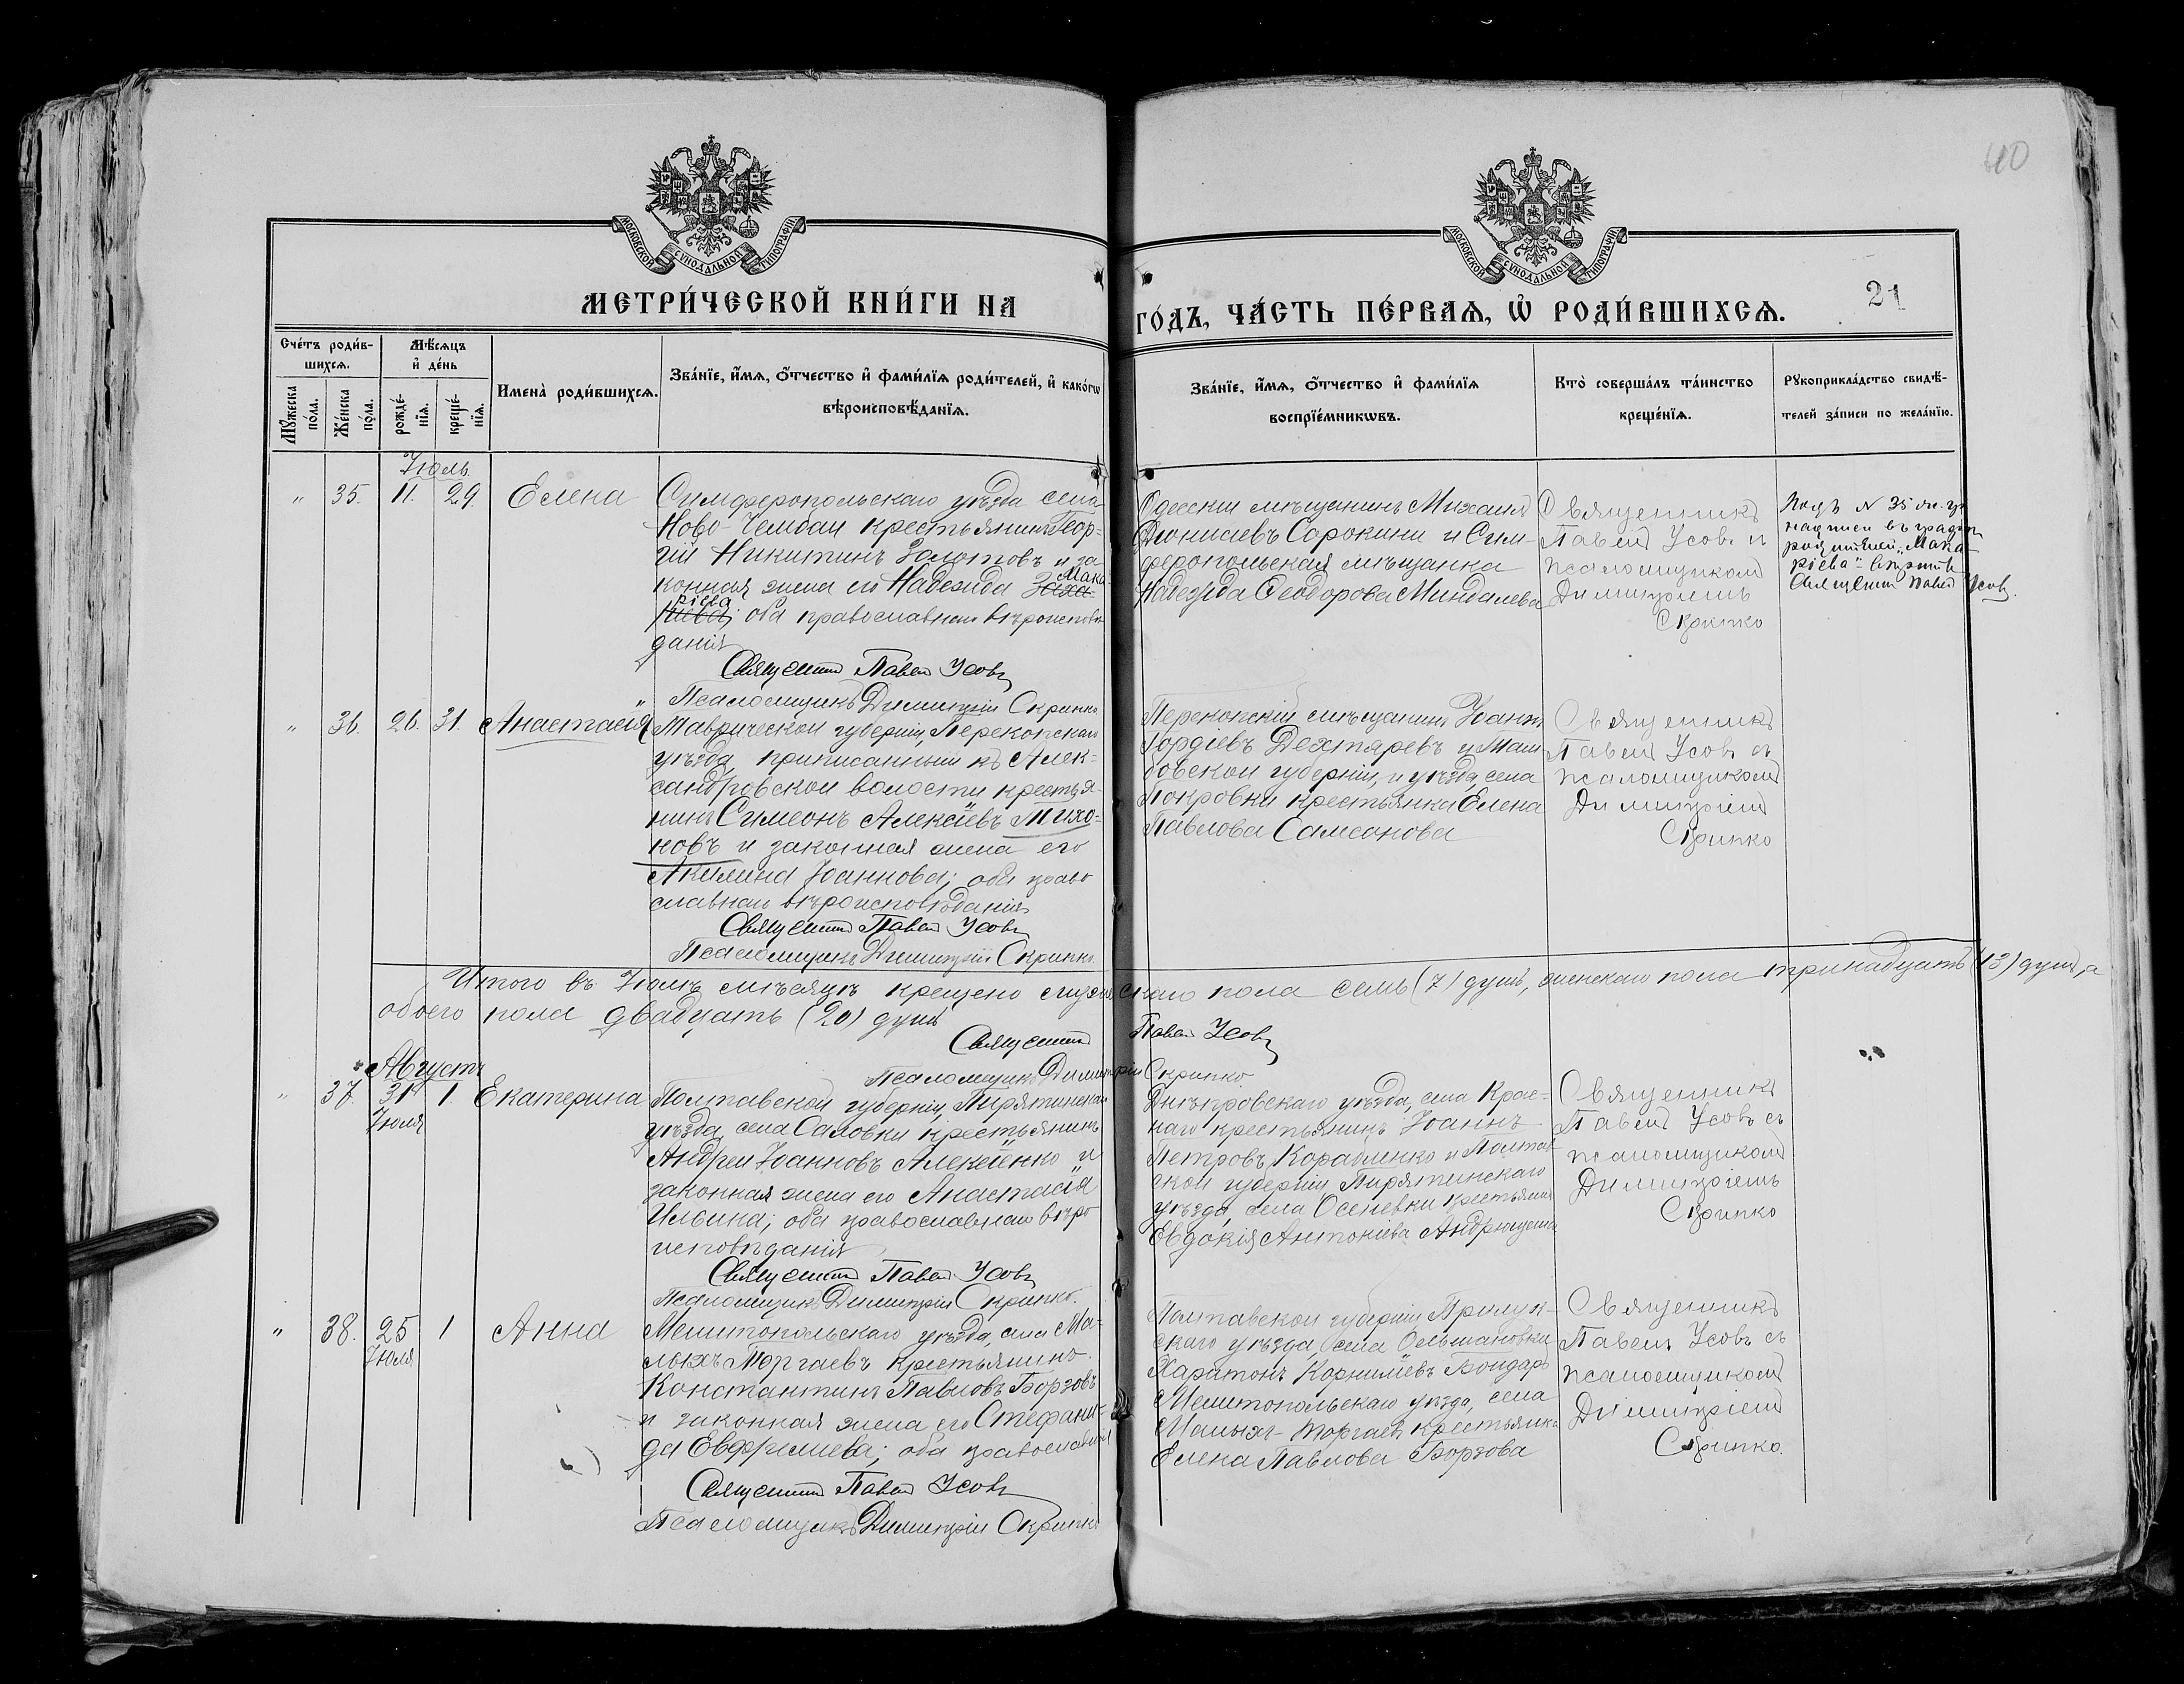 40
МОСКОВСКОЙ СѴНОДАЛЬНОЙ ТИПОГРАФІИ
МОСКОВСКОЙ СѴНОДАЛЬНОЙ ТИПОГРАФІИ
МЕТРИ́ЧЕСКОЙ КНИ́ГИ НА
ГО́ДЪ, ЧА́СТЬ ПЕ́РВАѦ, Ѡ҆ РОДИ́ВШИХСѦ.
21
Сче́тъ роди́в-
шихсѧ.
Мѣ́сѧцъ
и҆ де́нь
Мꙋ́жеска по́ла.
Же́нска по́ла.
рожде́-нїѧ.
креще́-нїѧ.
Имена̀ роди́вшихсѧ.
Зва́нїе, и҆́мѧ, ѻ҆́тчество и҆ фами́лїѧ роди́телей, и҆ како́гѡ
вѣроисповѣ́данїѧ.
Зва́нїе, и҆́мѧ, ѻ҆́тчество и҆ фами́лїѧ
воспрїе́мникѡвъ.
Кто̀ соверша́лъ та́инство
креще́нїѧ.
Рꙋкоприкла́дство свидѣ́-
телей за́писи по жела́нїю.
Іюль
" 35. 11. 29. Елена
Симферопольскаго уѣзда села
Ново-Чембаи крестьянинъ Геор-
гій Никитинъ Золотовъ и за
конная жена его Надежда Мака-
ріева, оба православнаго вѣроисповѣ-
данія
Священникъ Павелъ Усовъ
Псаломщикъ Димитрій Скрипко
Одесскій мѣщанинъ Михаилъ
Діонисіевъ Сорокинъ и Сим-
феропольская мѣщанка
Надежда Ѳеодорова Миндалева
Священникъ
Павелъ Усовъ и
псаломщикомъ
Димитріемъ
Скрипко
Подъ № 35 по
надписи въ графѣ
родителей "Мака-
ріева" вѣрить
Священникъ Павелъ Усовъ.
" 36. 26. 31. Анастасія
Таврической губерніи, Перекопскаго
уѣзда, приписанный къ Алек-
сандровской волости крестья-
нинъ Симеонъ Алексѣевъ Тихо-
новъ и законная жена его
Акилина Іоаннова; оба право
славнаго вѣроисповѣданія
Священникъ Павелъ Усовъ
Псаломщикъ Димитрій Скрипко.
Перекопскій мѣщанинъ Іоаннъ
Гордіевъ Дехтяревъ и Там-
бовской губерніи, и уѣзда, села
Покровки крестьянка Елена
Павлова Самсонова
Священникъ
Павелъ Усовъ съ
псаломщикомъ
Димитріемъ
Скрипко
Итого въ Іюлѣ мѣсяцѣ крещено мужескаго пола семь (7) душъ, женскаго пола тринадцать (13) душъ, а
обоего пола двадцать (20) душъ
Священникъ Павелъ Усовъ
Псаломщикъ Димитрій Скрипко
Августъ
" 37. 31 Іюля 1 Екатерина
Полтавской губерніи, Пирятинскаго
уѣзда, села Саловки крестьянинъ
Андрей Іоанновъ Алексѣенко и
законная жена его Анастасія
Ильина; оба православнаго вѣро
исповѣданія
Священникъ Павелъ Усовъ
Псаломщикъ Димитрій Скрипко.
Днѣпровскаго уѣзда, села Крас-
наго крестьянинъ Іоаннъ
Петровъ Корабленко и Полтав-
ской губерніи Пирятинскаго
уѣзда, села Осеневки крестьянка
Евдокія Антоніева
Священникъ
Павелъ Усовъ съ
псаломщикомъ
Димитріемъ
Скрипко
" 38. 25 Іюля 1 Анна
Мелитопольскаго уѣзда, села Ма-
лыхъ Торгаевъ крестьянинъ
Константинъ Павловъ Борзовъ
и законная жена его Стефани-
да Евфиміева; оба православные
Священникъ Павелъ Усовъ
Псаломщикъ Димитрій Скрипко
Полтавской губерніи Прилук-
скаго уѣзда, села Ольшановки
Харитонъ Корниліевъ Бондарь
Мелитопольскаго уѣзда, села
Малыхъ-Торгаевъ крестьянка
Елена Павлова Борзова
Священникъ
Павелъ Усовъ съ
псаломщикомъ
Димитріемъ
Скрипко.